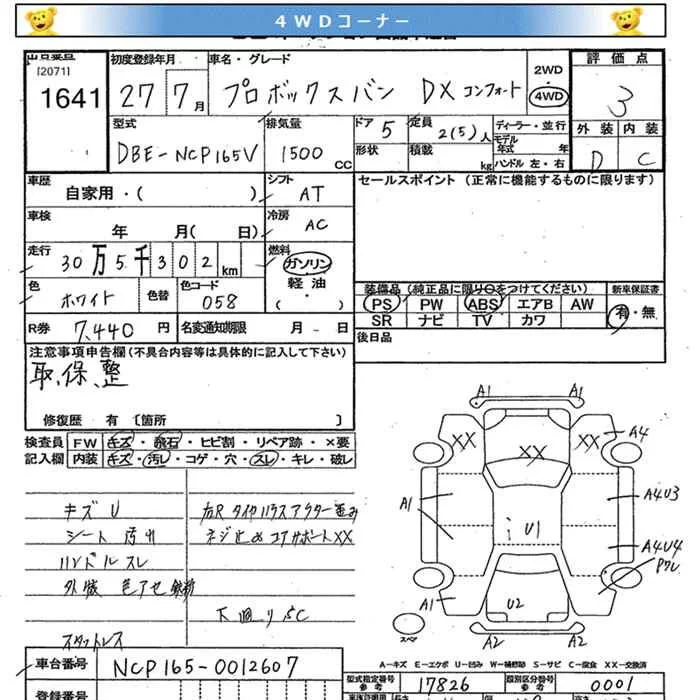 4WDコーナー
出品番号 初度登録年月 車名・グレード 評価点
[2071]
1641 27 7月 プロボックスバン DX コンフォート 2WD 4WD 3
型式 排気量 ドア 5 定員 2(5)人 ディーラー・並行 外装 内装
DBE-NCP165V 1500 CC 形状 積載 kg モデル年式 年 D C
ハンドル 左・右
車歴 シフト セールスポイント (正常に機能するものに限ります)
自家用・( ) AT
車検 冷房
年 月( 日) AC
走行 燃料
30万5千302km ガソリン
軽油
( )
色 色替 色コード 装備品 (純正品に限り○をつけてください) 新車保証書
ホワイト 058 PS PW ABS エアB AW 有・無
SR ナビ TV カワ
R券 7,440円 名変通知期限 月 日 後日品
注意事項申告欄(不具合内容等は具体的に記入して下さい)
取、保、整
修復歴 有 〔箇所 〕
検査員 FW キズ・飛石・ヒビ割・リペア跡・×要
記入欄 内装 キズ・汚レ・コゲ・穴・スレ・キレ・破レ
キズ U
シート 汚れ
ハンドルスレ
外装 色アセ
スタットレス
右Rタイヤハウスアウター歪み
ネジ止め コアサポートXX
下廻りSC
A1 A1
XX XX XX A4
A1 A4U3
U1
A4U4
A1 U2
A2 A2
スペア
A-キズ E-エクボ U-凹み W-補修跡 S-サビ C-腐食 XX-交換済
車台番号 NCP165-0012607
型式指定番号 参考 17826 類別区分番号 参考 0001
登録番号